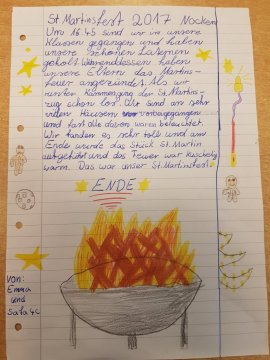 St Martinsfest 2017 Nocken
Um 16.45 sind wir in unsere
Klassen gegangen und haben
unsere schönen Laternen
geholt. Währenddessen haben
unsere Eltern das Martins-
feuer angezündet. Als wir
runter kammen ging der St. Martins-
zug schon los. Wir sind an sehr
vielen Häusern vorbeigegangen
und fast alle davon waren beleuchtet.
Wir fanden es sehr toll und am
Ende wurde das Stück St. Martin
aufgeführt und das Feuer war kuschelig
warm. Das war unser St. Martinsfest!
ENDE
von:
Emma
und
Safa 4C